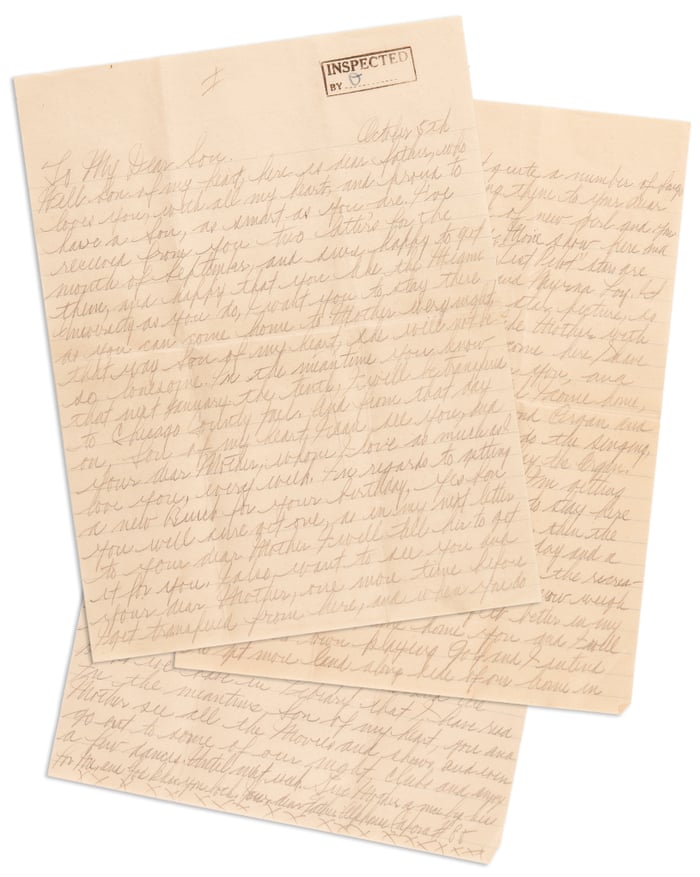 INSPECTED
BY
October 5th
To My Dear Son.
Well son of my heart, here is dear father, who
loves you, with all my heart, and proud to
have a son, as smart as you are. I've
received from you two letters for the
month of September, and sure happy to get
them, and happy that you like the Miami
University as you do, I want you to stay there
as you can come home to Mother every night
that way Son of my heart, she will not be
so lonesome. In the meantime you know
that next January the tenth, I will be transfered
to Chicago County Jail. And from that day
on, Son of my heart, I can see you, and
your dear Mother, whom I love as much as I
love you, every week. In regards to getting
a new Buick for your birthday, yes son
you will sure get one, as in my next letter
to your dear Mother I will tell her to get
it for you. I also want to see you and
your dear Mother, one more time before
I get transfered from here, and when you do
quite a number of days
them to your dear
of new
Movie show here and
stars are
and Myrna Loy. It
picture, so
Mother with
come here I have
you, and
I come home,
and Organ and
do the singing,
the Organ.
I'm getting
to stay here
than the
day and a
the recrea-
now weigh
better in my
home you and I will
down playing Golf and I intend
to get more land along side of our home in
we have in Library that I have read
In the meantime Son of my heart, you and
Mother see all the Movies and shows, and even
go out to some of our night clubs and enjoy
a few dances. Until next week. Love Mother
for me, and God bless you both. Your dear father Alphonse Capone # 85
xxxxxxxxxxxxxxxxxxxxxxx